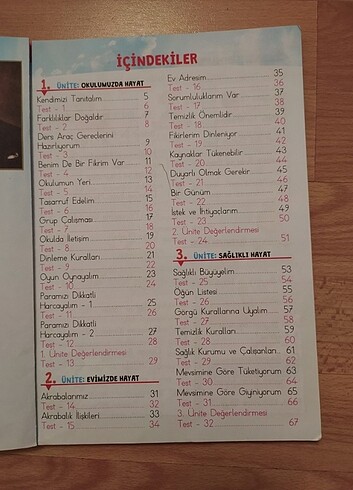 İÇİNDEKİLER
1. ÜNİTE: OKULUMUZDA HAYAT
Kendimizi Tanıtalım 5
Test - 1 6
Farklılıklar Doğaldır 7
Test - 2 8
Ders Araç Gereçlerini
Hazırlıyorum 9
Test - 3 10
Benim De Bir Fikrim Var 11
Test - 4 12
Okulumun Yeri 13
Test - 5 14
Tasarruf Edelim 15
Test - 6 16
Grup Çalışması 17
Test - 7 18
Okulda İletişim 19
Test - 8 20
Dinleme Kuralları 21
Test - 9 22
Oyun Oynayalım 23
Test - 10 24
Paramızı Dikkatli
Harcayalım - 1 25
Test - 11 26
Paramızı Dikkatli
Harcayalım - 2 27
Test - 12 28
1. Ünite Değerlendirmesi
Test - 13 29
2. ÜNİTE: EVİMİZDE HAYAT
Akrabalarımız 31
Test - 14 32
Akrabalık İlişkileri 33
Test - 15 34
Ev Adresim 35
Test - 16 36
Sorumluluklarım Var 37
Test - 17 38
Temizlik Önemlidir 39
Test - 18 40
Fikirlerim Dinleniyor 41
Test - 19 42
Kaynaklar Tükenebilir 43
Test - 20 44
Duyarlı Olmak Gerekir 45
Test - 21 46
Bir Günüm 47
Test - 22 48
İstek ve İhtiyaçlarım 49
Test - 23 50
2. Ünite Değerlendirmesi
Test - 24 51
3. ÜNİTE: SAĞLIKLI HAYAT
Sağlıklı Büyüyelim 53
Test - 25 54
Öğün Listesi 55
Test - 26 56
Görgü Kurallarına Uyalım 57
Test - 27 58
Temizlik Kuralları 59
Test - 28 60
Sağlık Kurumu ve Çalışanları 61
Test - 29 62
Mevsimine Göre Tüketiyorum 63
Test - 30 64
Mevsimine Göre Giyiniyorum 65
Test - 31 66
3. Ünite Değerlendirmesi
Test - 32 67